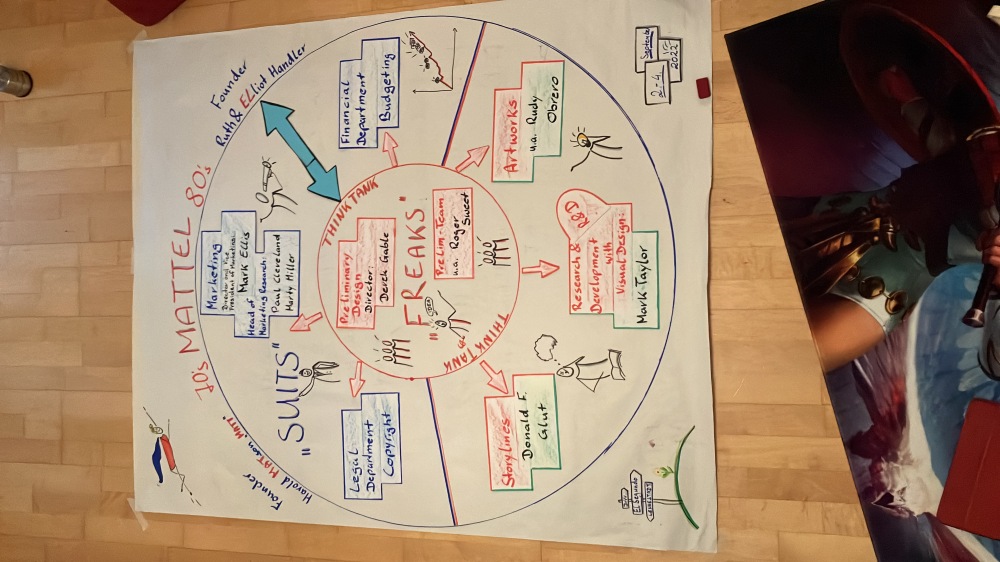 70's MATTEL 80's
Founder
Ruth & ELLiot Handler
Founder
Harold MATTson "MATT"
Marketing
Director and Vice
President of Marketing:
Head of Mark Ellis
Marketing Research:
Paul Cleveland
Marty Miller
"SUITS"
Financial
Department
Budgeting
Legal
Department
Copyright
THINK TANK
Preliminary
Design
Director:
Derek Gable
"FREAKS"
IDEA
Prelim.-Team
u.a. Roger
Sweet
THINKTANK
Artworks
u.a. Rudy
Obrero
R&D
Research &
Development
with
Visual Design:
Mark Taylor
Storylines
Donald F.
Glut
September
2.-4.
2022
El Segundo